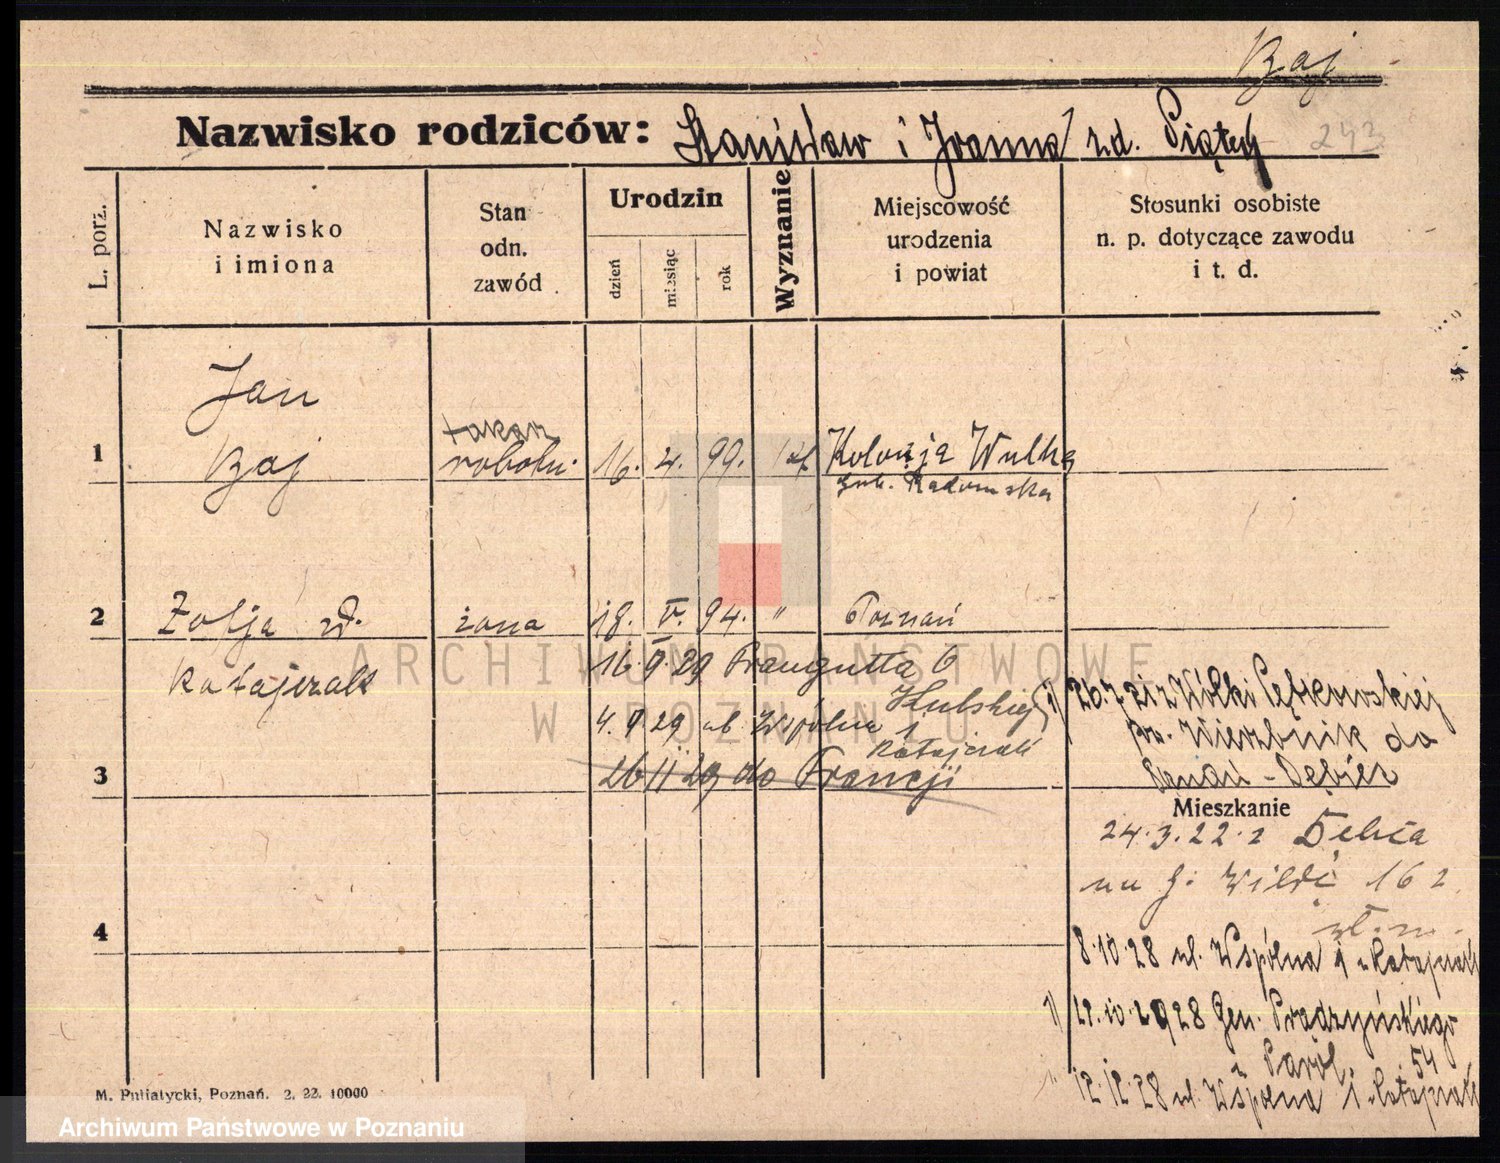 Baj
Nazwisko rodziców: Stanisław i Joanna zd. Piątek 243
L. porz.
Nazwisko
i imiona
Stan
odn.
zawód
Urodzin
dzień
miesiąc
rok
Wyznanie
Miejscowość
urodzenia
i powiat
Stosunki osobiste
n. p. dotyczące zawodu
i t. d.
Jan
1 Baj robotn. 16. 4. 99. kat. Kolonja Wulka
gub. Radomska
2 Zofja zd. żona 18. V. 94. " Poznań
Ratajczak
16. 9. 29 Traugutta 6
4. 9 29 ul. Wspólna 1
Ratajczak
3 26 11 29 do Francji
Wierzbnik do
Poznań - Dębiec
Mieszkanie
24.3.22. z Dębca
na G. Wildę 162
4
8.10.28 ul. Wspólna 1 u Ratajczak
1) 22.10.1928 Gen. Prądzyńskiego
54
12.12.28 ul. Wspólna 1 u Ratajczak
M. Putiatycki, Poznań. 2. 22. 10000
ARCHIWUM PAŃSTWOWE
W POZNANIU
Archiwum Państwowe w Poznaniu